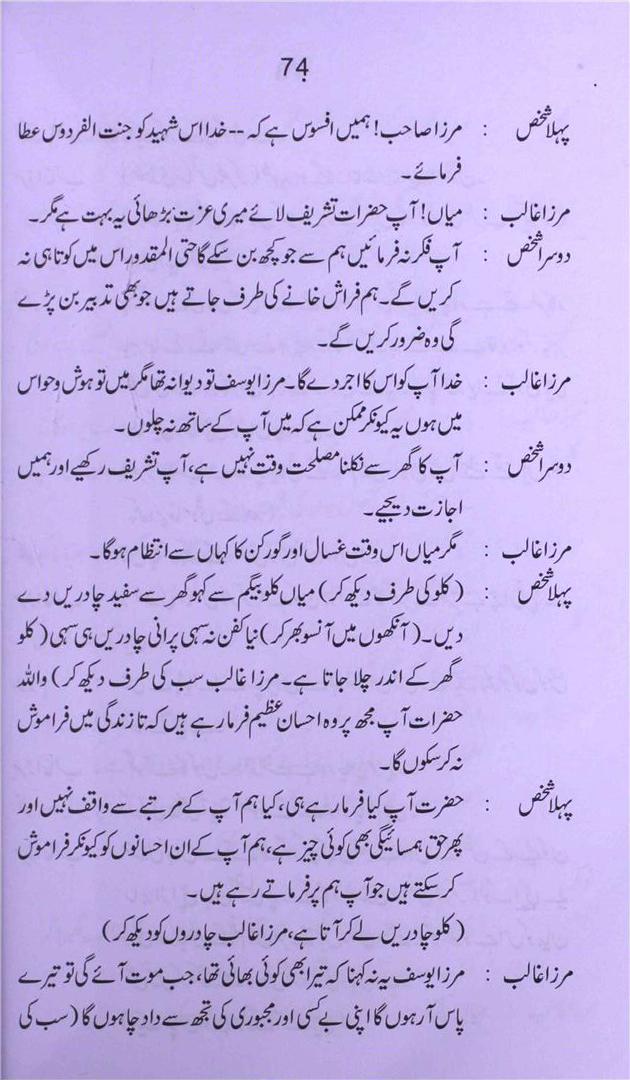 74
پہلا شخص : مرزا صاحب! ہمیں افسوس ہے کہ -- خدا اس شہید کو جنت الفردوس عطا
فرمائے۔
مرزا غالب : میاں! آپ حضرات تشریف لائے میری عزت بڑھائی یہ بہت ہے مگر۔
دوسرا شخص : آپ فکر نہ فرمائیں ہم سے جو کچھ بن سکے گا حتی المقدور اس میں کوتاہی نہ
کریں گے۔ ہم فراش خانے کی طرف جاتے ہیں جو بھی تدبیر بن پڑے
گی وہ ضرور کریں گے۔
مرزا غالب : خدا آپ کو اس کا اجر دے گا۔ مرزا یوسف تو دیوانہ تھا مگر میں تو ہوش و حواس
میں ہوں یہ کیونکر ممکن ہے کہ میں آپ کے ساتھ نہ چلوں۔
دوسرا شخص : آپ کا گھر سے نکلنا مصلحت وقت نہیں ہے، آپ تشریف رکھیے اور ہمیں
اجازت دیجیے۔
مرزا غالب : مگر میاں اس وقت غسال اور گورکن کا کہاں سے انتظام ہوگا۔
پہلا شخص : (کلو کی طرف دیکھ کر) میاں کلو بیگم سے کہو گھر سے سفید چادریں دے
دیں۔ (آنکھوں میں آنسو بھر کر) نیا کفن نہ سہی پرانی چادریں ہی سہی (کلو
گھر کے اندر چلا جاتا ہے۔ مرزا غالب سب کی طرف دیکھ کر) واللہ
حضرات آپ مجھ پر وہ احسان عظیم فرما رہے ہیں کہ تا زندگی میں فراموش
نہ کر سکوں گا۔
پہلا شخص : حضرت آپ کیا فرما رہے ہی، کیا ہم آپ کے مرتبے سے واقف نہیں اور
پھر حق ہمسائیگی بھی کوئی چیز ہے، ہم آپ کے ان احسانوں کو کیونکر فراموش
کر سکتے ہیں جو آپ ہم پر فرماتے رہے ہیں۔
(کلو چادریں لے کر آتا ہے، مرزا غالب چادروں کو دیکھ کر)
مرزا غالب : مرزا یوسف یہ نہ کہنا کہ تیرا بھی کوئی بھائی تھا، جب موت آئے گی تو تیرے
پاس آ رہوں گا اپنی بے کسی اور مجبوری کی تجھ سے داد چاہوں گا (سب کی